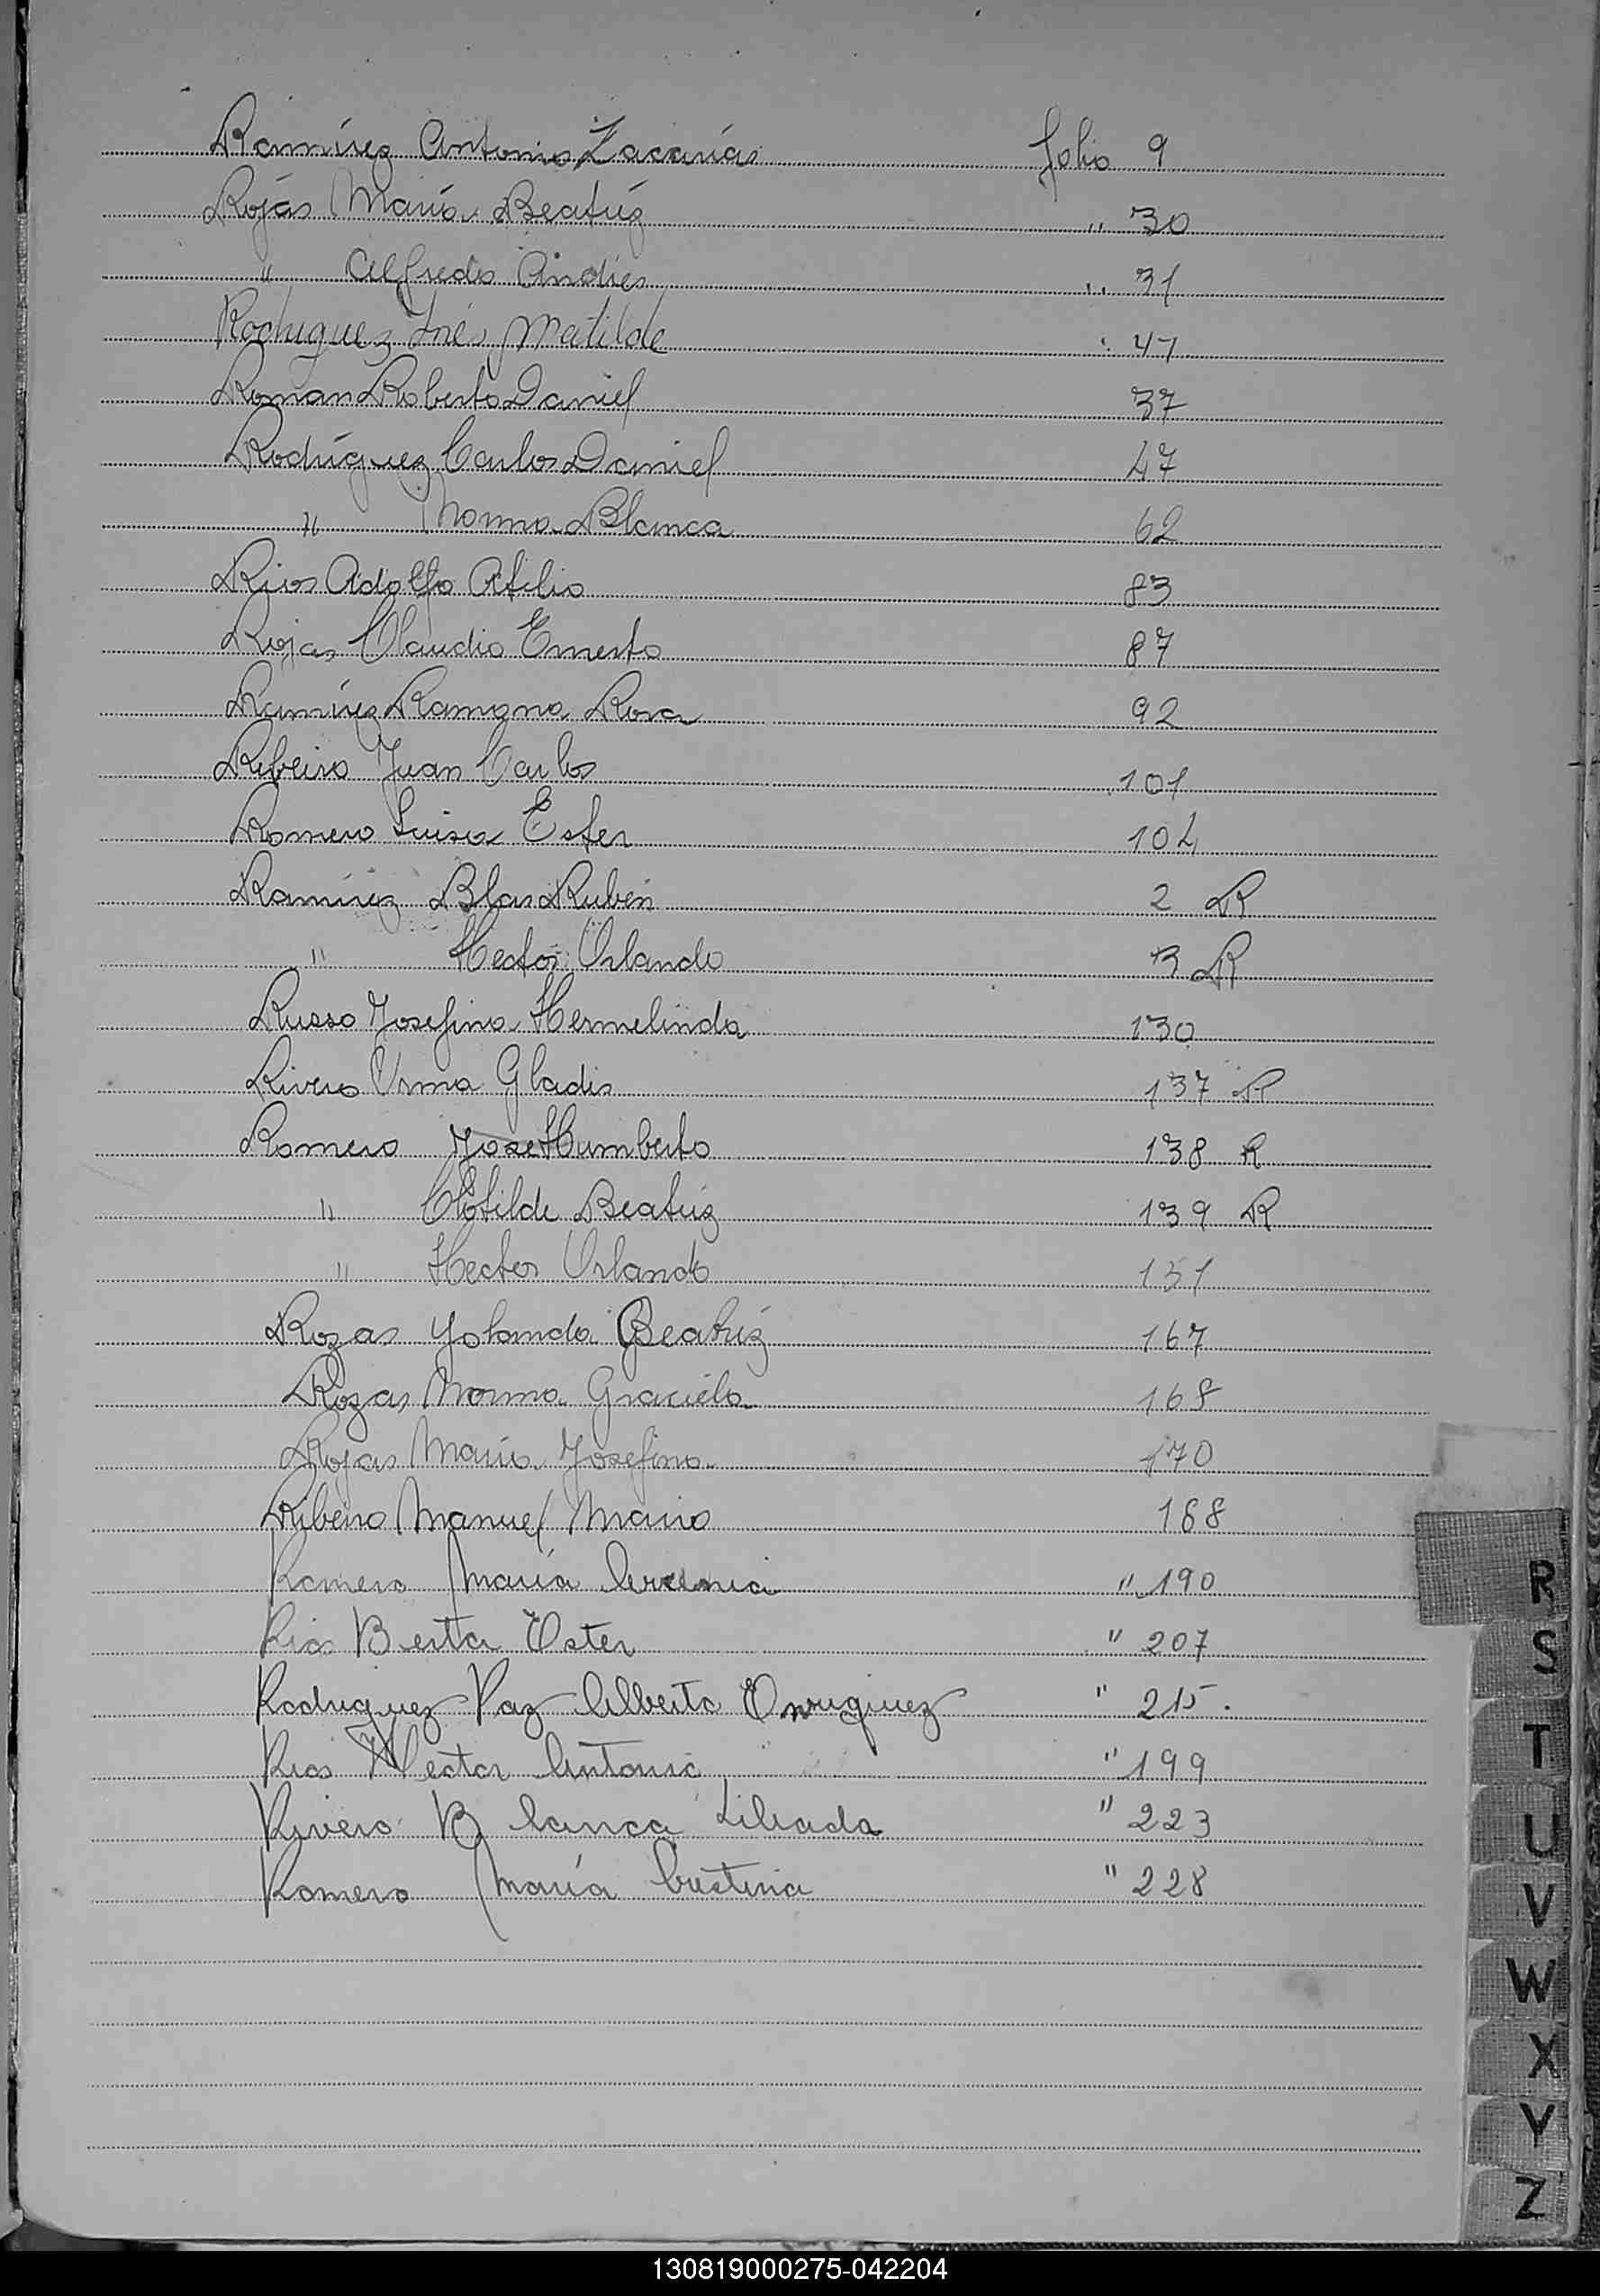 Ramírez Antonio Zacarías folio 9
Rojás María Beatríz " 30
" Alfredo Andres " 31
Rodriguez Inés Matilde " 47
Roman Roberto Daniel 37
Rodríguez Carlos Daniel 47
" Norma Blanca 62
Rios Adolfo Atilio 83
Rojas Claudio Ernesto 87
Ramírez Ramona Rosa 92
Ribeiro Juan Carlos 101
Romero Luisa Ester 104
Ramírez Blas Rubén 2 R
" Hector Orlando 3 R
Russo Josefina Hermelinda 130
Rivero Irma Gladis 137 R
Romero Jose Humberto 138 R
" Clotilde Beatriz 139 R
" Hector Orlando 151
Rozas Yolanda Beatríz 167
Rozas Norma Graciela 168
Rojas María Josefina 170
Ribeiro Manuel Mario 188
Romero María " 190
Rios Berta Ester " 207
Rodriguez Paz Alberto Enriquez " 215.
Rios Hector Antonio " 199
Rivero Blanca Librada " 223
Romero María Cristina " 228
R
S
T
U
V
W
X
Y
Z
130819000275-042204